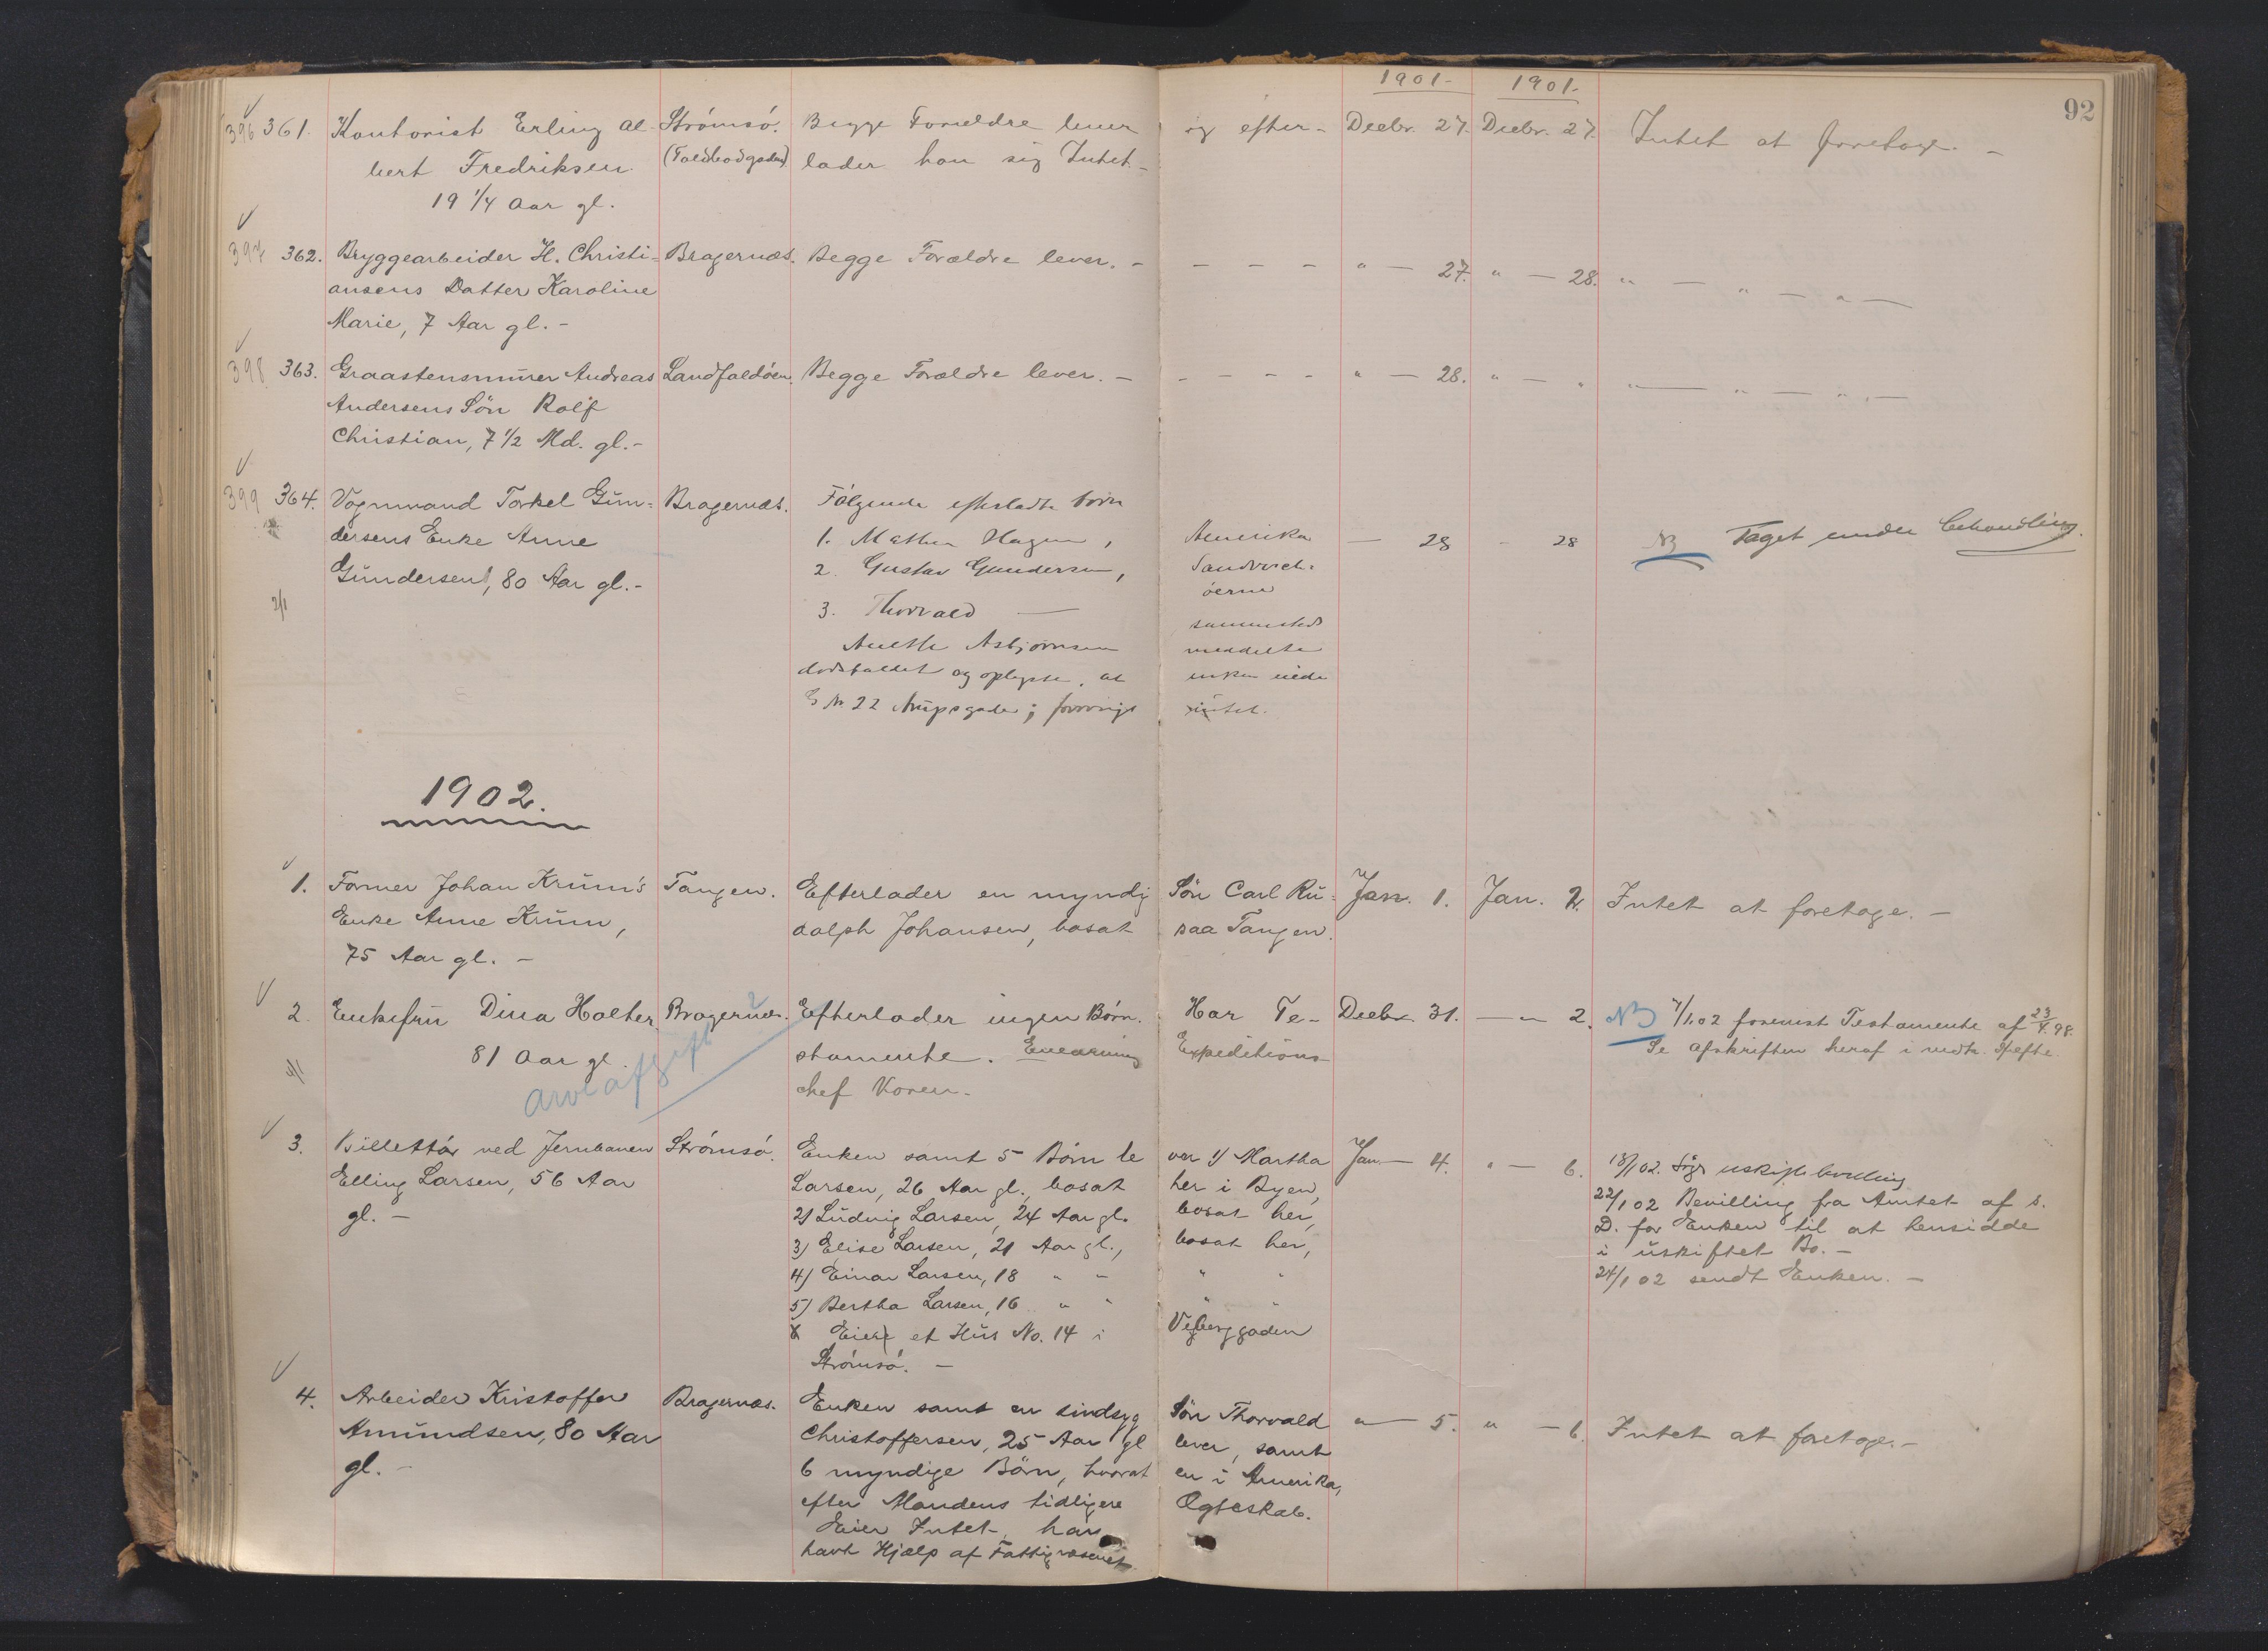 92
1901- 1901-
396 361. Kontorist Erling Al- Strömsö. Begge Forældre lever og efter- Decbr. 27. Decbr. 27. Intet at foretage. -
bert Fredriksen (Toldbodgaden) lader han sig Intet. -
19 1/4 Aar gl.
397 362. Bryggearbeider H. Christi- Bragernæs. Begge Forældre lever. - - - - - " - 27. " - 28. " - " - " -
ansens Datter Karoline
Marie, 7 Aar gl. -
398 363. Graastensmurer Andreas Landfaldöen. Begge Forældre lever. - - - - - " - 28. " - " " - " - " -
Andersens Sön Rolf
Christian, 7 1/2 Md. gl. -
399 364. Vognmand Torkel Gun- Bragernæs. Fölgende efterladte börn
dersens Enke Anne 1. Mathea Hagen, Amerika - 28 - 28 NB Taget under behandling.
Gundersen, 80 Aar gl. - 2. Gustav Gundersen, Sandwich-
öerne
2/1 3. Thorvald - sammesteds
Anette Asbjörnsen meddelte
dödsfaldet og oplyste, at enken eiede
G No 22 Arupsgade; forövrigt intet.
1902.
1. Former Johan Krum's Tangen. Efterlader en myndig Sön Carl Ru- Jan. 1. Jan. 2. Intet at foretage. -
Enke Anne Krum, dolph Johansen, bosat paa Tangen.
75 Aar gl. -
2. Enkefru Dina Holter Bragernæs. Efterlader ingen Börn. Har Te- Decbr. 31. - " - 2. NB 7/1.02 foremist Testamente af 23/4.98.
81 Aar gl. stamente. Enearving Expeditions- Se afskriften heraf i vedk. Hefte.
4/1 arveafgift chef Koren.
3. Billettör ved Jernbanen Strömsö. Enken samt 5 Börn le ver 1) Martha Jan. - 4. " - 6. 18/1 02. Sögt uskiftebevilling
Elling Larsen, 56 Aar Larsen, 26 Aar gl., bosat her i Byen, 22/1 02 Bevilling fra Amtet af s.
gl. - 2) Ludvig Larsen, 24 Aar gl. bosat her, D. for Enken til at hensidde
3) Elise Larsen, 21 Aar gl., bosat her, i uskiftet Bo. -
4) Einar Larsen, 18 " " " " 24/1 02 sendt Enken. -
5) Bertha Larsen, 16 " " " "
Eier et Hus No. 14 i Vebergaden
Strömsö. -
4. Arbeider Kristoffer Bragernæs. Enken samt en sindsyg Sön Thorvald " - 5. " - 6. Intet at foretage. -
Amundsen, 80 Aar Christoffersen, 25 Aar gl lever, samt
gl. - 6 myndige Börn, hvorat en i Amerika,
efter Mandens tidligere Ægteskab.
Eier Intet, har
havt Hjælp af Fattigvæsenet.